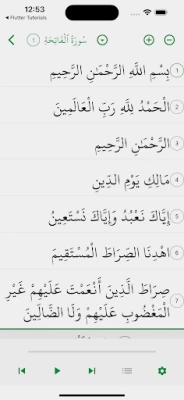 12:53
◀ Flutter Tutorials
سُورَةُ ٱلْفَاتِحَةِ ١
بِسْمِ اللَّهِ الرَّحْمَٰنِ الرَّحِيمِ ١
الْحَمْدُ لِلَّهِ رَبِّ الْعَالَمِينَ ٢
الرَّحْمَٰنِ الرَّحِيمِ ٣
مَالِكِ يَوْمِ الدِّينِ ٤
إِيَّاكَ نَعْبُدُ وَإِيَّاكَ نَسْتَعِينُ ٥
اهْدِنَا الصِّرَاطَ الْمُسْتَقِيمَ ٦
صِرَاطَ الَّذِينَ أَنْعَمْتَ عَلَيْهِمْ غَيْرِ
الْمَغْضُوبِ عَلَيْهِمْ وَلَا الضَّالِّينَ ٧